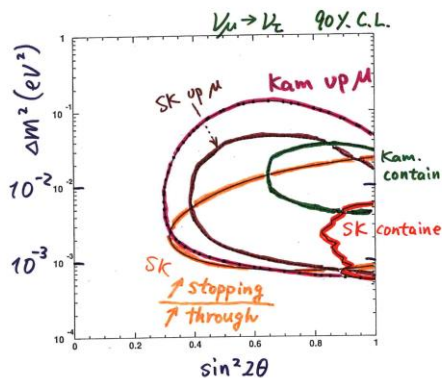 νμ → ντ 90% C.L.
Δm² (eV²)
1
10⁻¹
10⁻²
10⁻³
10⁻⁴
SK up μ
Kam up μ
Kam.
contain
SK containe
SK
↗ stopping
↗ through
0 0.2 0.4 0.6 0.8 1
sin² 2θ